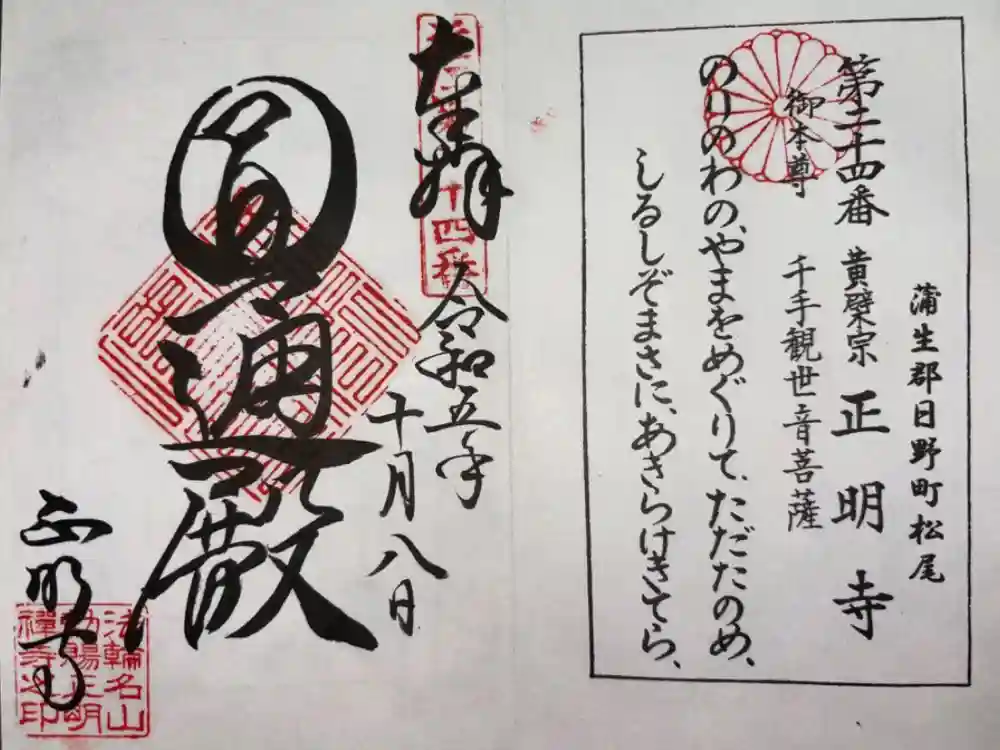 蒲生郡日野町松尾
第二十四番 黄檗宗 正明寺
御本尊 千手観世音菩薩
のりのわの、やまをめぐりて、ただたのめ、
しるしぞまさに、あきらけきてら、
奉拝
十四番
令和五年
十月八日
圓通殿
正明寺
法輪名山
勅賜正明
禪寺之印